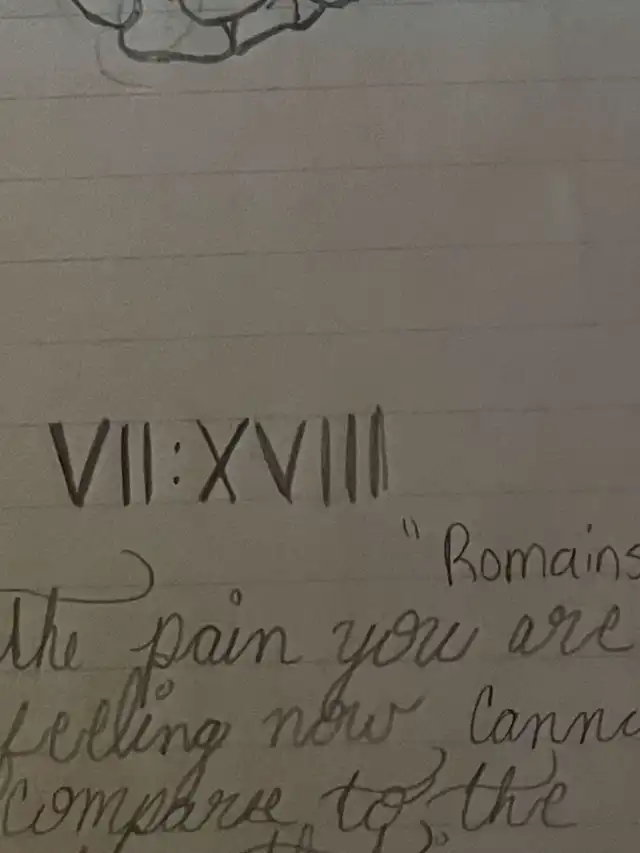 VII:XVIII
"Romains
the pain you are
feeling now Canno
compare to the